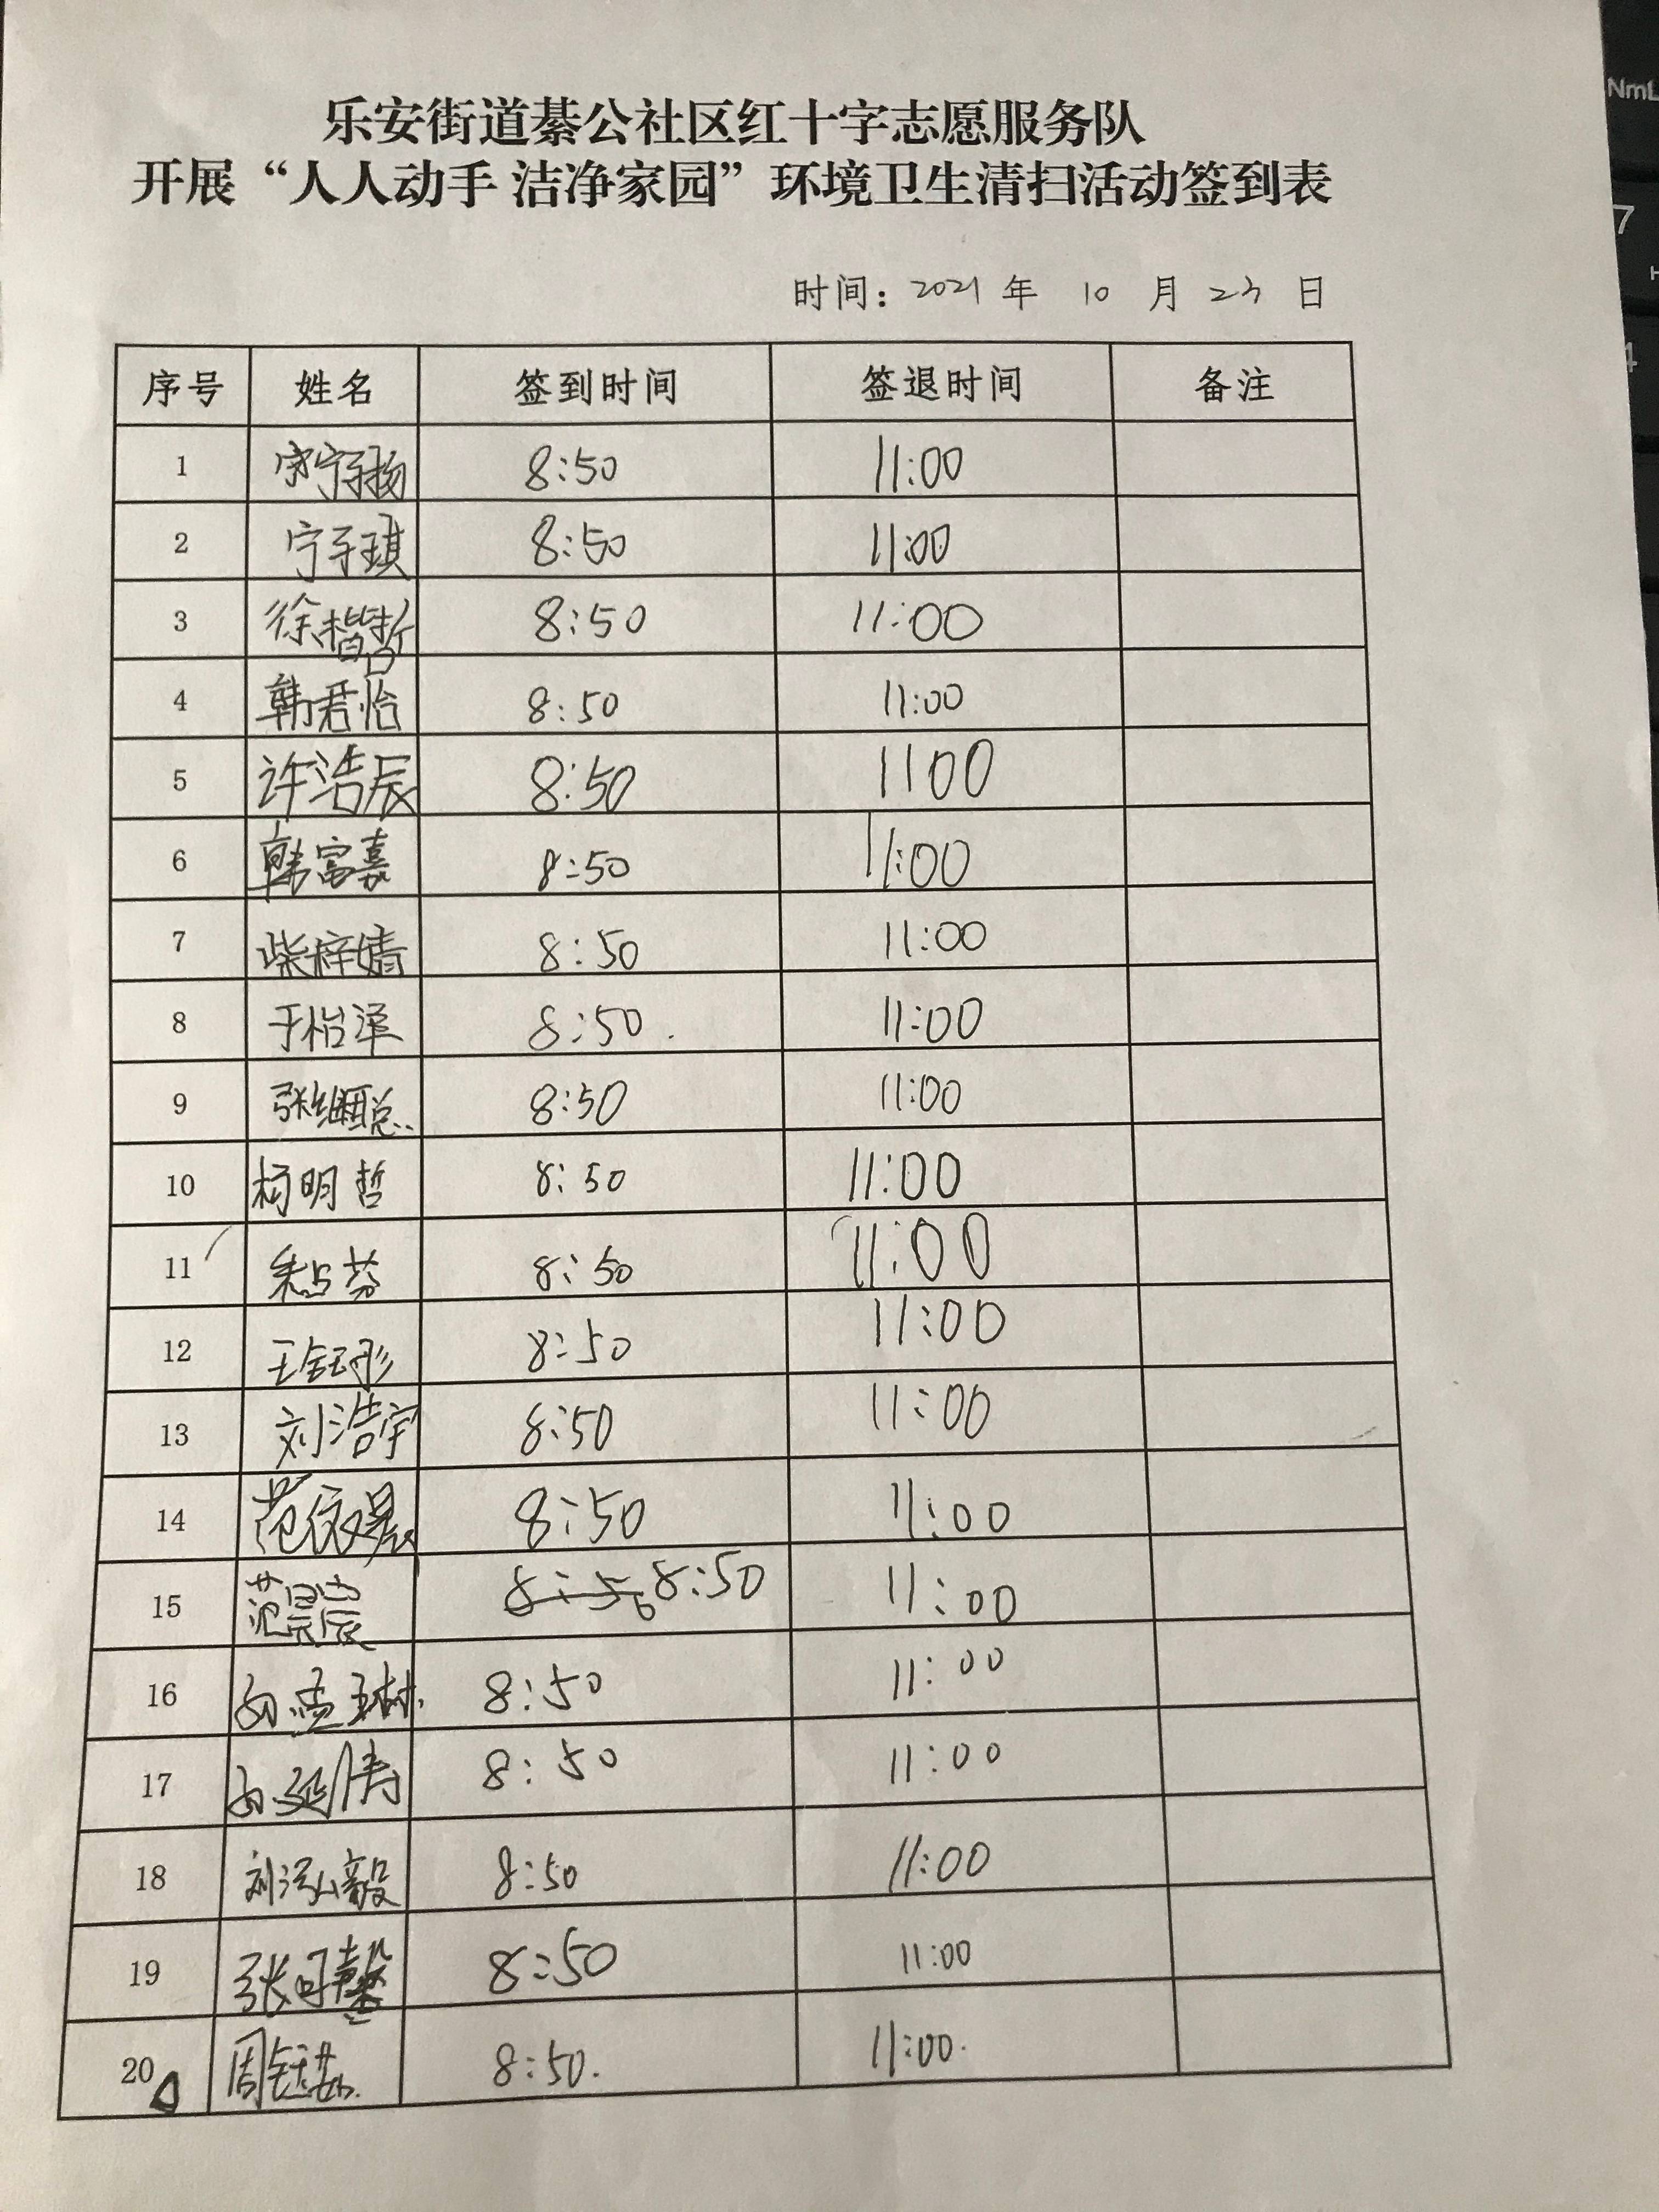 乐安街道綦公社区红十字志愿服务队
开展“人人动手 洁净家园”环境卫生清扫活动签到表
时间：2021 年 10 月 23 日
序号 姓名 签到时间 签退时间 备注
1 宁子扬 8:50 11:00
2 宁子琪 8:50 11:00
3 徐楷哲 8:50 11:00
4 韩君怡 8:50 11:00
5 许浩辰 8:50 1100
6 韩富嘉 8:50 11:00
7 柴梓婧 8:50 11:00
8 于怡泽 8:50. 11:00
9 张继聪 8:50 11:00
10 杨明哲 8:50 11:00
11 8:50 11:00
12 王钰彤 8:50 11:00
13 刘浩宇 8:50 11:00
14 范 8:50 11:00
15 范晨 8:50 8:50 11:00
16 8:50 11:00
17 8:50 11:00
18 刘泓毅 8:50 11:00
19 张可馨 8:50 11:00
20 周钰茹. 8:50. 11:00.
NmL
7
4